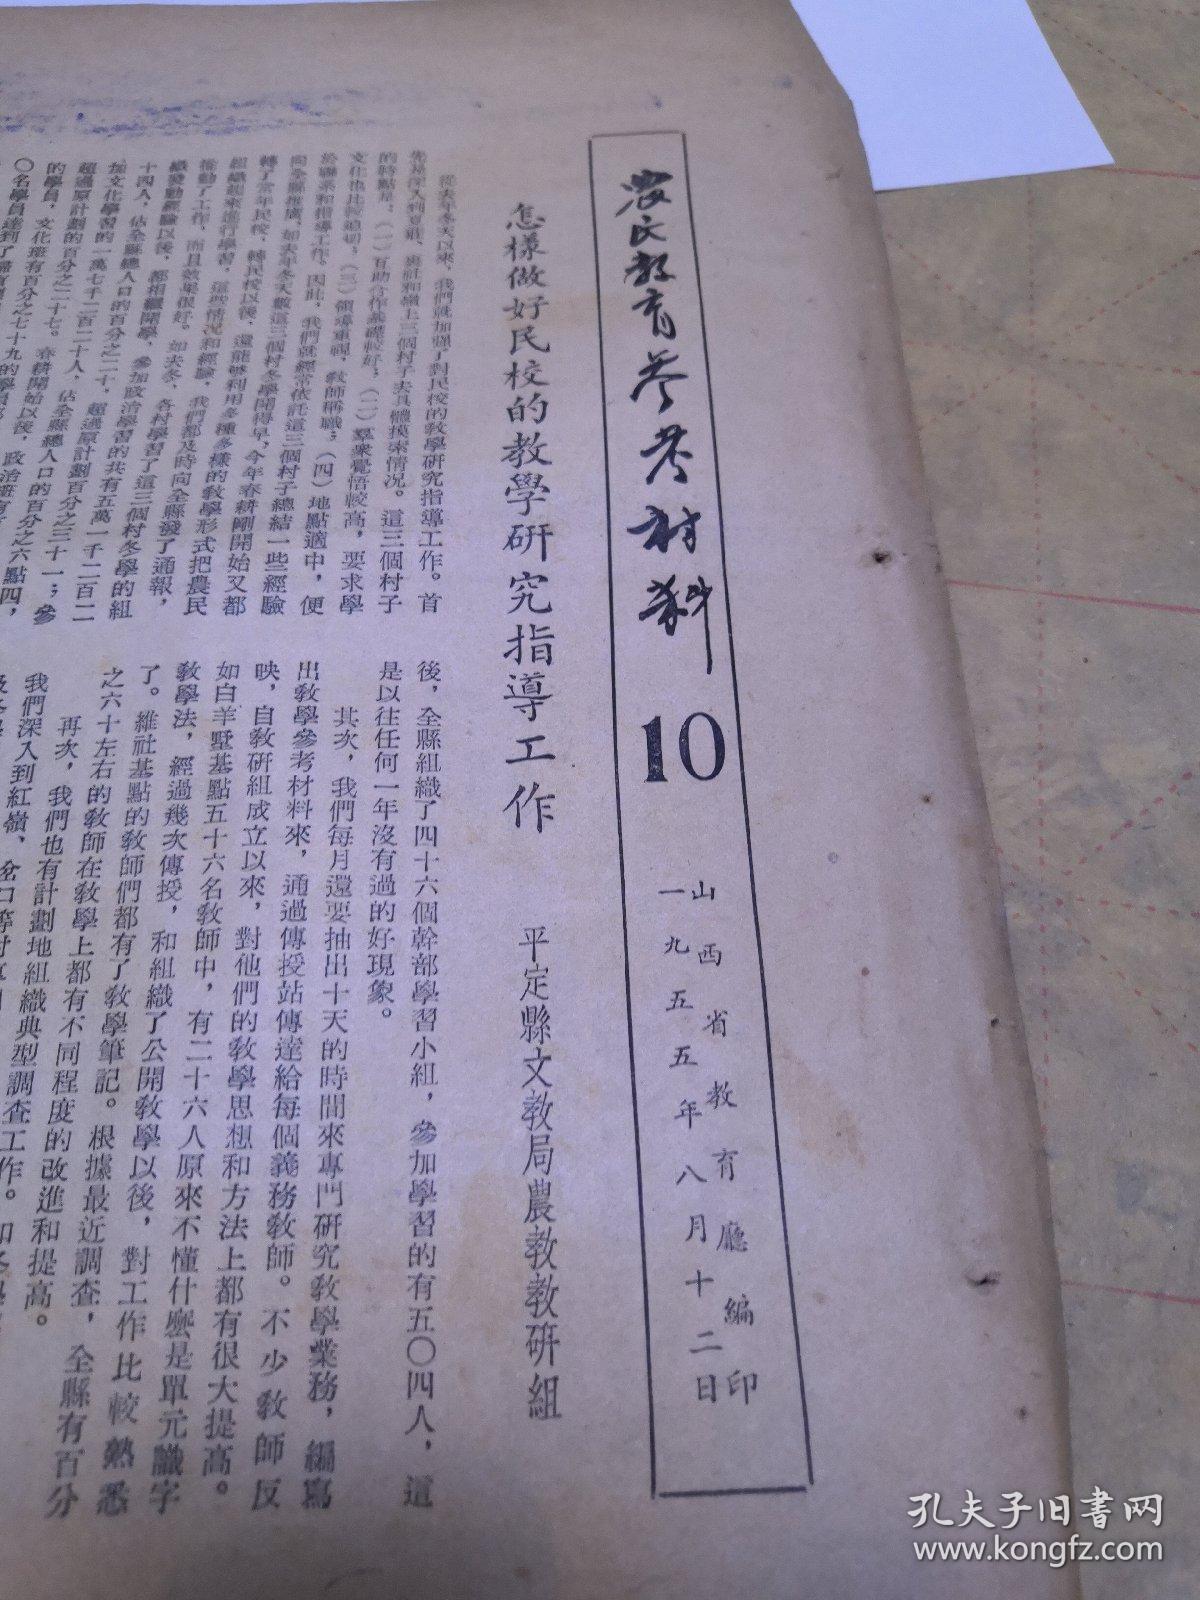 農民教育參考材料 10
山西省教育廳編印
一九五五年八月十二日
怎樣做好民校的教學研究指導工作
平定縣文教局農教教研組
從去年冬天以來，我們就加强了對民校的教學研究指導工作。首
的特點是：（一）互助合作基礎較好，（二）羣衆覺悟較高，要求學
文化也比較迫切；（三）領導重視，敎師稱職；（四）地點適中，便
於聯系和指導工作。因此，我們就經常依託這三個村子總結一些經驗
向全縣推廣。如去年冬天數這三個村冬學開得早，今年春耕剛開始又都
轉了常年民校，轉民校以後，還能够利用多種多樣的敎學形式把農民
組織起來進行學習，這些情况和經驗，我們都及時向全縣發了通報，
推動了工作，而且效果很好。如去冬，各村學習了這三個村冬學的組
織發動經驗以後，都相繼開學，參加政治學習的共有五萬一千二百二
十四人，佔全縣總人口的百分之二十，超過原計劃百分之三十一；參
加文化學習的一萬七千二百二十人，佔全縣總人口的百分之六點四，
超過原計劃的百分之二十七。春耕開始以後，政治班有
的學員，文化班有百分之七十九的學員
〇名學員達到了
後，全縣組織了四十六個幹部學習小組，參加學習的有五〇四人，這
是以往任何一年沒有過的好現象。
其次，我們每月還要抽出十天的時間來專門研究敎學業務，編寫
出敎學參考材料來，通過傳授站傳達給每個義務敎師。不少敎師反
映，自敎研組成立以來，對他們的敎學思想和方法上都有很大提高。
如白羊墅基點五十六名敎師中，有二十六人原來不懂什麽是單元識字
敎學法，經過幾次傳授，和組織了公開敎學以後，對工作比較熟悉
了。維社基點的敎師們都有了敎學筆記。根據最近調查，全縣有百分
之六十左右的敎師在敎學上都有不同程度的改進和提高。
再次，我們也有計劃地組織典型調查工作。如冬學
我們深入到紅嶺、岔口等村
孔夫子旧書网
www.kongfz.com